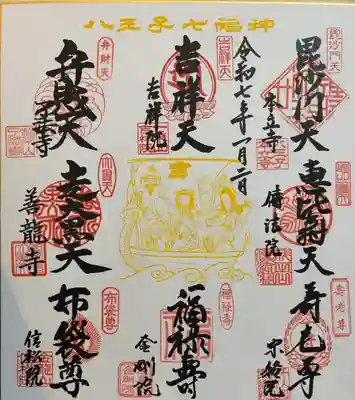 八王子七福神
毘沙門天
毘沙門天
本立寺
恵比寿天
傳法院
寿老尊
寿老尊
宗格院
令和七年一月二日
吉祥天
吉祥天
吉祥院
福禄寿
金剛院
弁財天
弁財天
了法寺
走大黒天
善龍寺
布袋尊
布袋尊
信松院